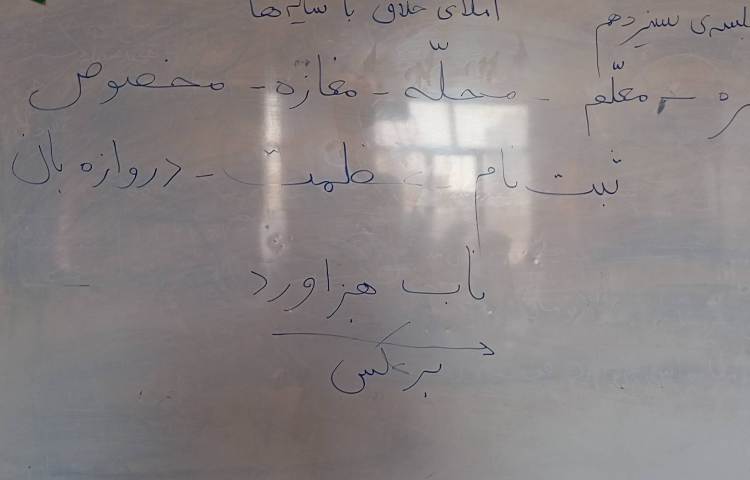 جلسه‌ی سیزدهم
املای خلاق با سایه‌ها
معلّم - محلّه - مغازه - مخصوص
ثبت نام - - دروازه بان
ناب هزاورد
برعکس